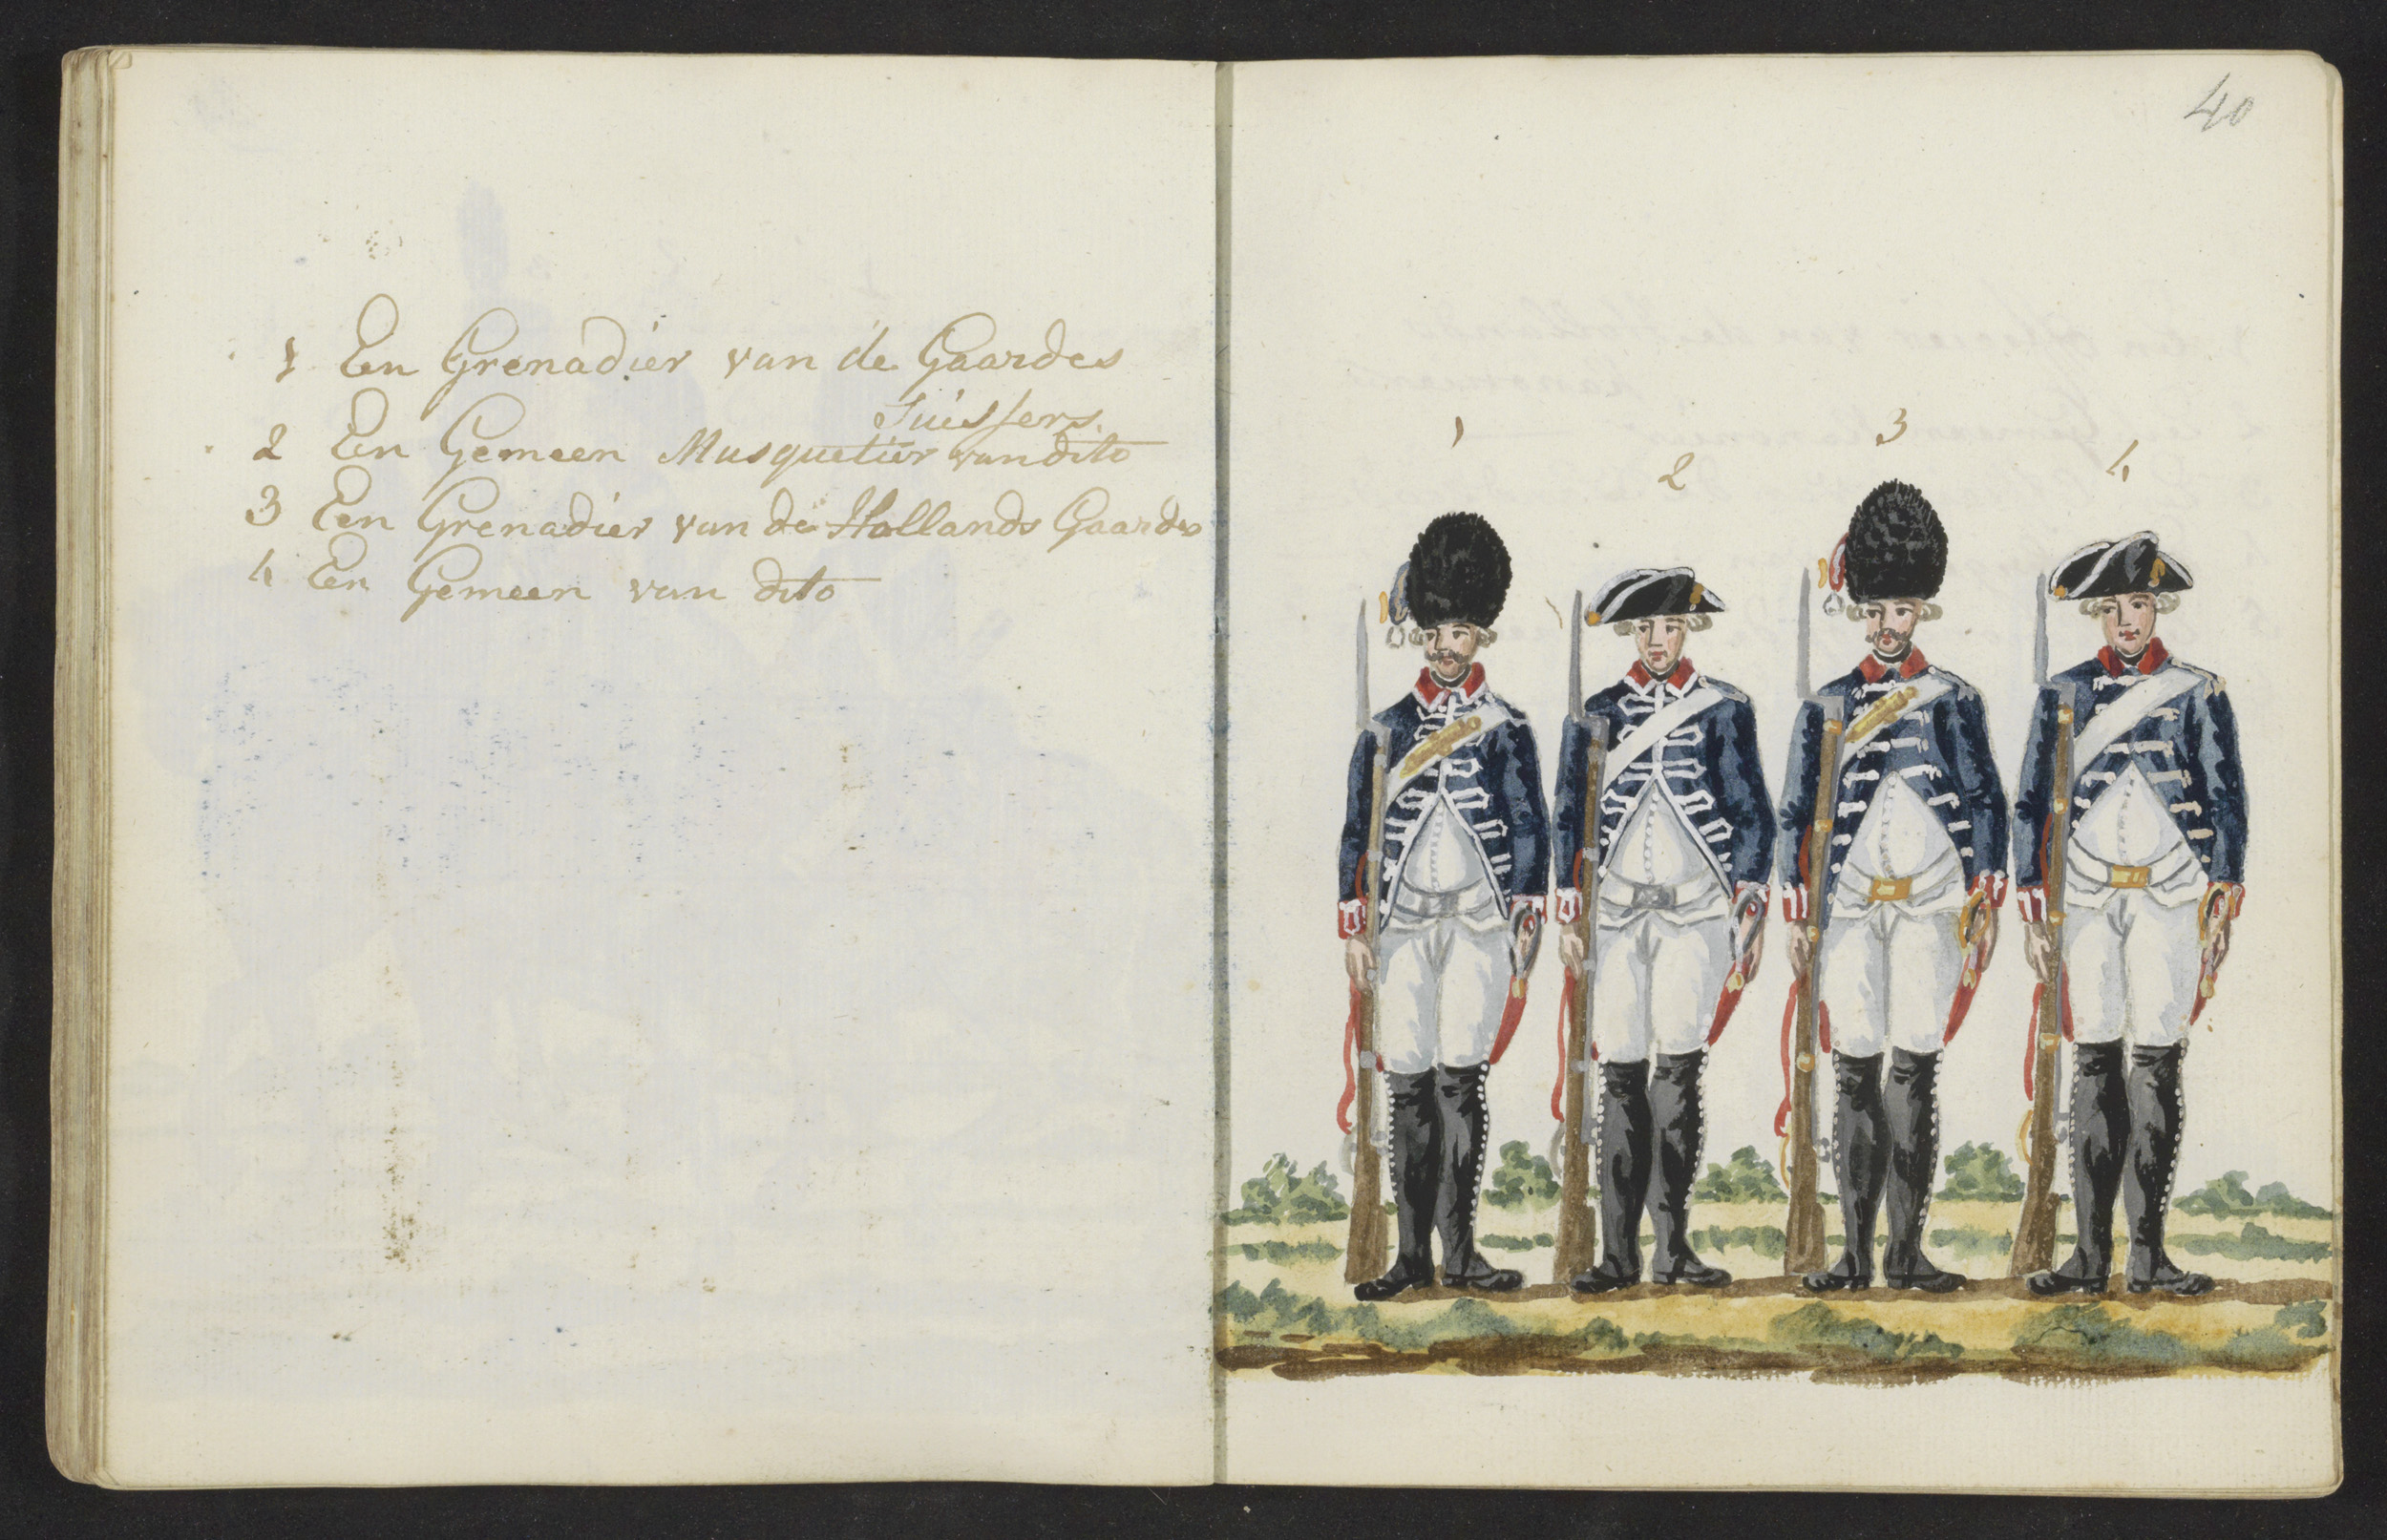 1 Een Grenadier van de Gaardes
Suissers.
2 Een Gemeen Musquetier van dito
3 Een Grenadier van de Hollands Gaardes
4 Een Gemeen van dito
40
1
2
3
4